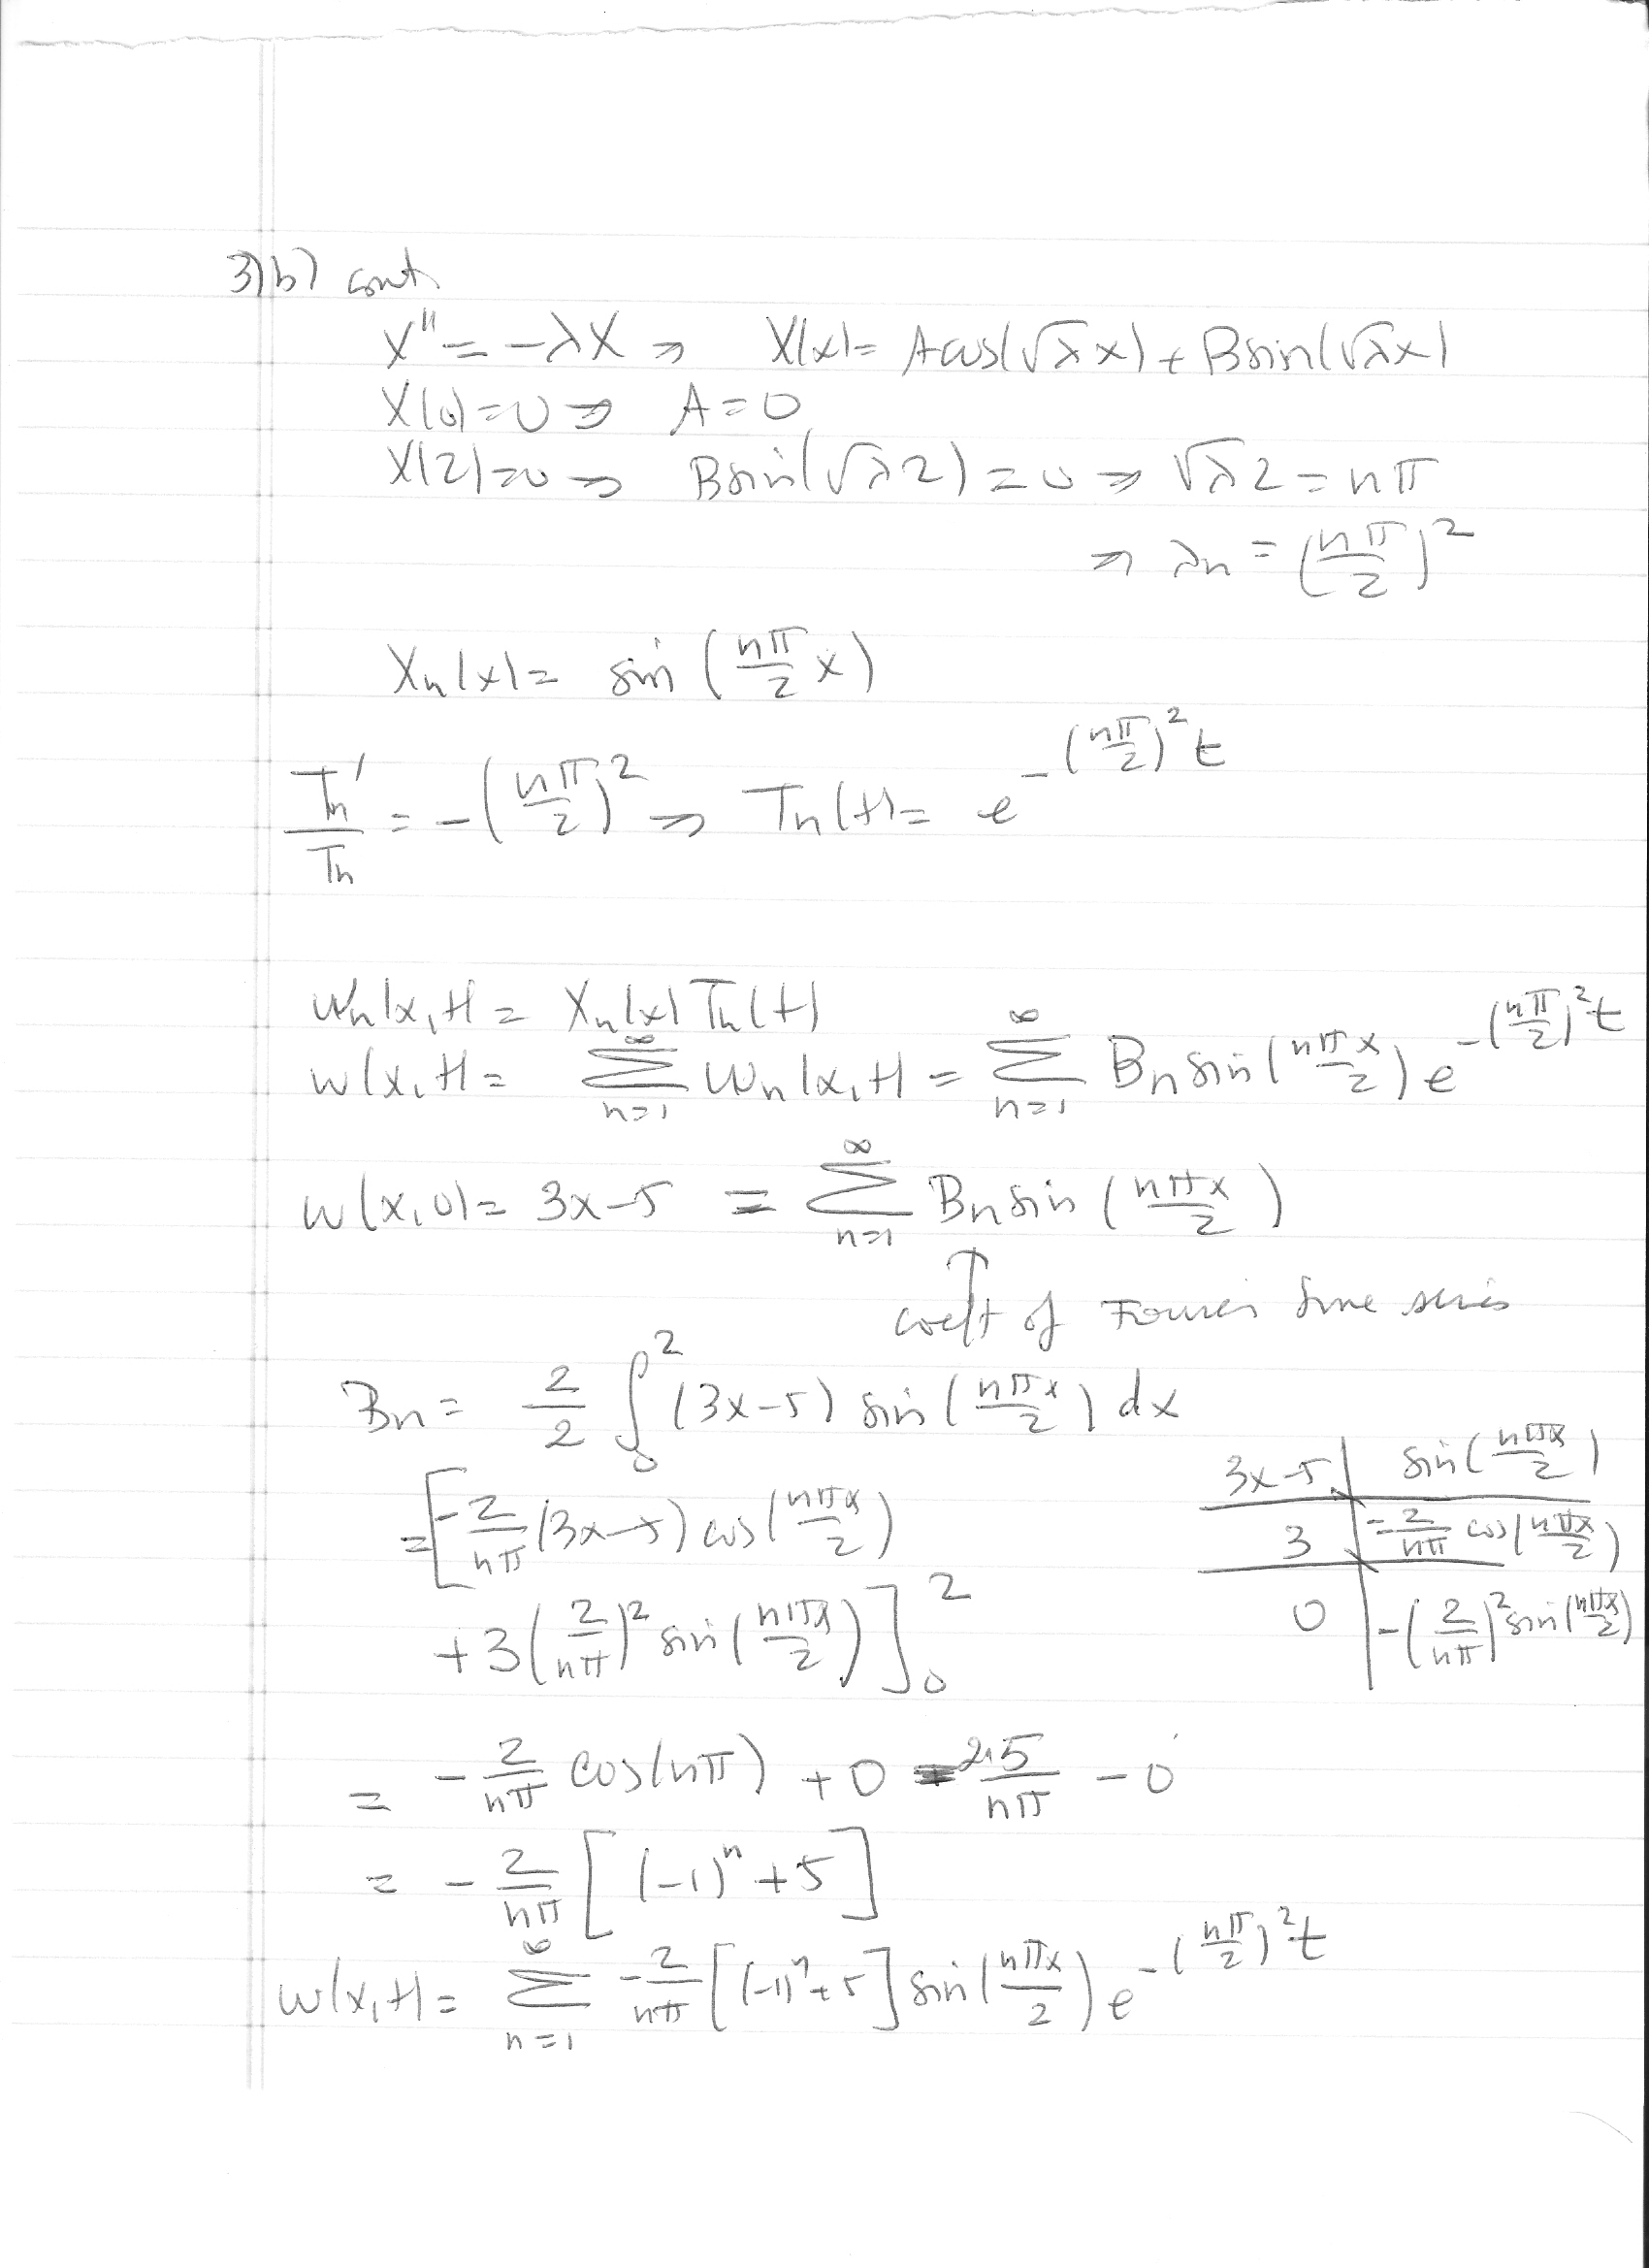 3)b) cont.
X'' = -λX ⇒ X(x) = A cos(√λ x) + B sin(√λ x)
X(0) = 0 ⇒ A = 0
X(2) = 0 ⇒ B sin(√λ 2) = 0 ⇒ √λ 2 = nπ
⇒ λn = (nπ/2)^2
Xn(x) = sin (nπ/2 x)
Tn'/Tn = -(nπ/2)^2 ⇒ Tn(t) = e^{-(nπ/2)^2 t}
wn(x,t) = Xn(x) Tn(t)
w(x,t) = ∑_{n=1}^{∞} wn(x,t) = ∑_{n=1}^{∞} Bn sin(nπx/2) e^{-(nπ/2)^2 t}
w(x,0) = 3x-5 = ∑_{n=1}^{∞} Bn sin (nπx/2)
↑
coeft of Fourier Sine series
Bn = 2/2 ∫_0^2 (3x-5) sin(nπx/2) dx
3x-5 | sin(nπx/2)
3 | -2/nπ cos(nπx/2)
0 | -(2/nπ)^2 sin(nπx/2)
= [-2/nπ (3x-5) cos(nπx/2)
+ 3(2/nπ)^2 sin(nπx/2)]_0^2
= -2/nπ cos(nπ) + 0 - 2·5/nπ - 0
= -2/nπ [(-1)^n + 5]
w(x,t) = ∑_{n=1}^{∞} -2/nπ [(-1)^n + 5] sin(nπx/2) e^{-(nπ/2)^2 t}